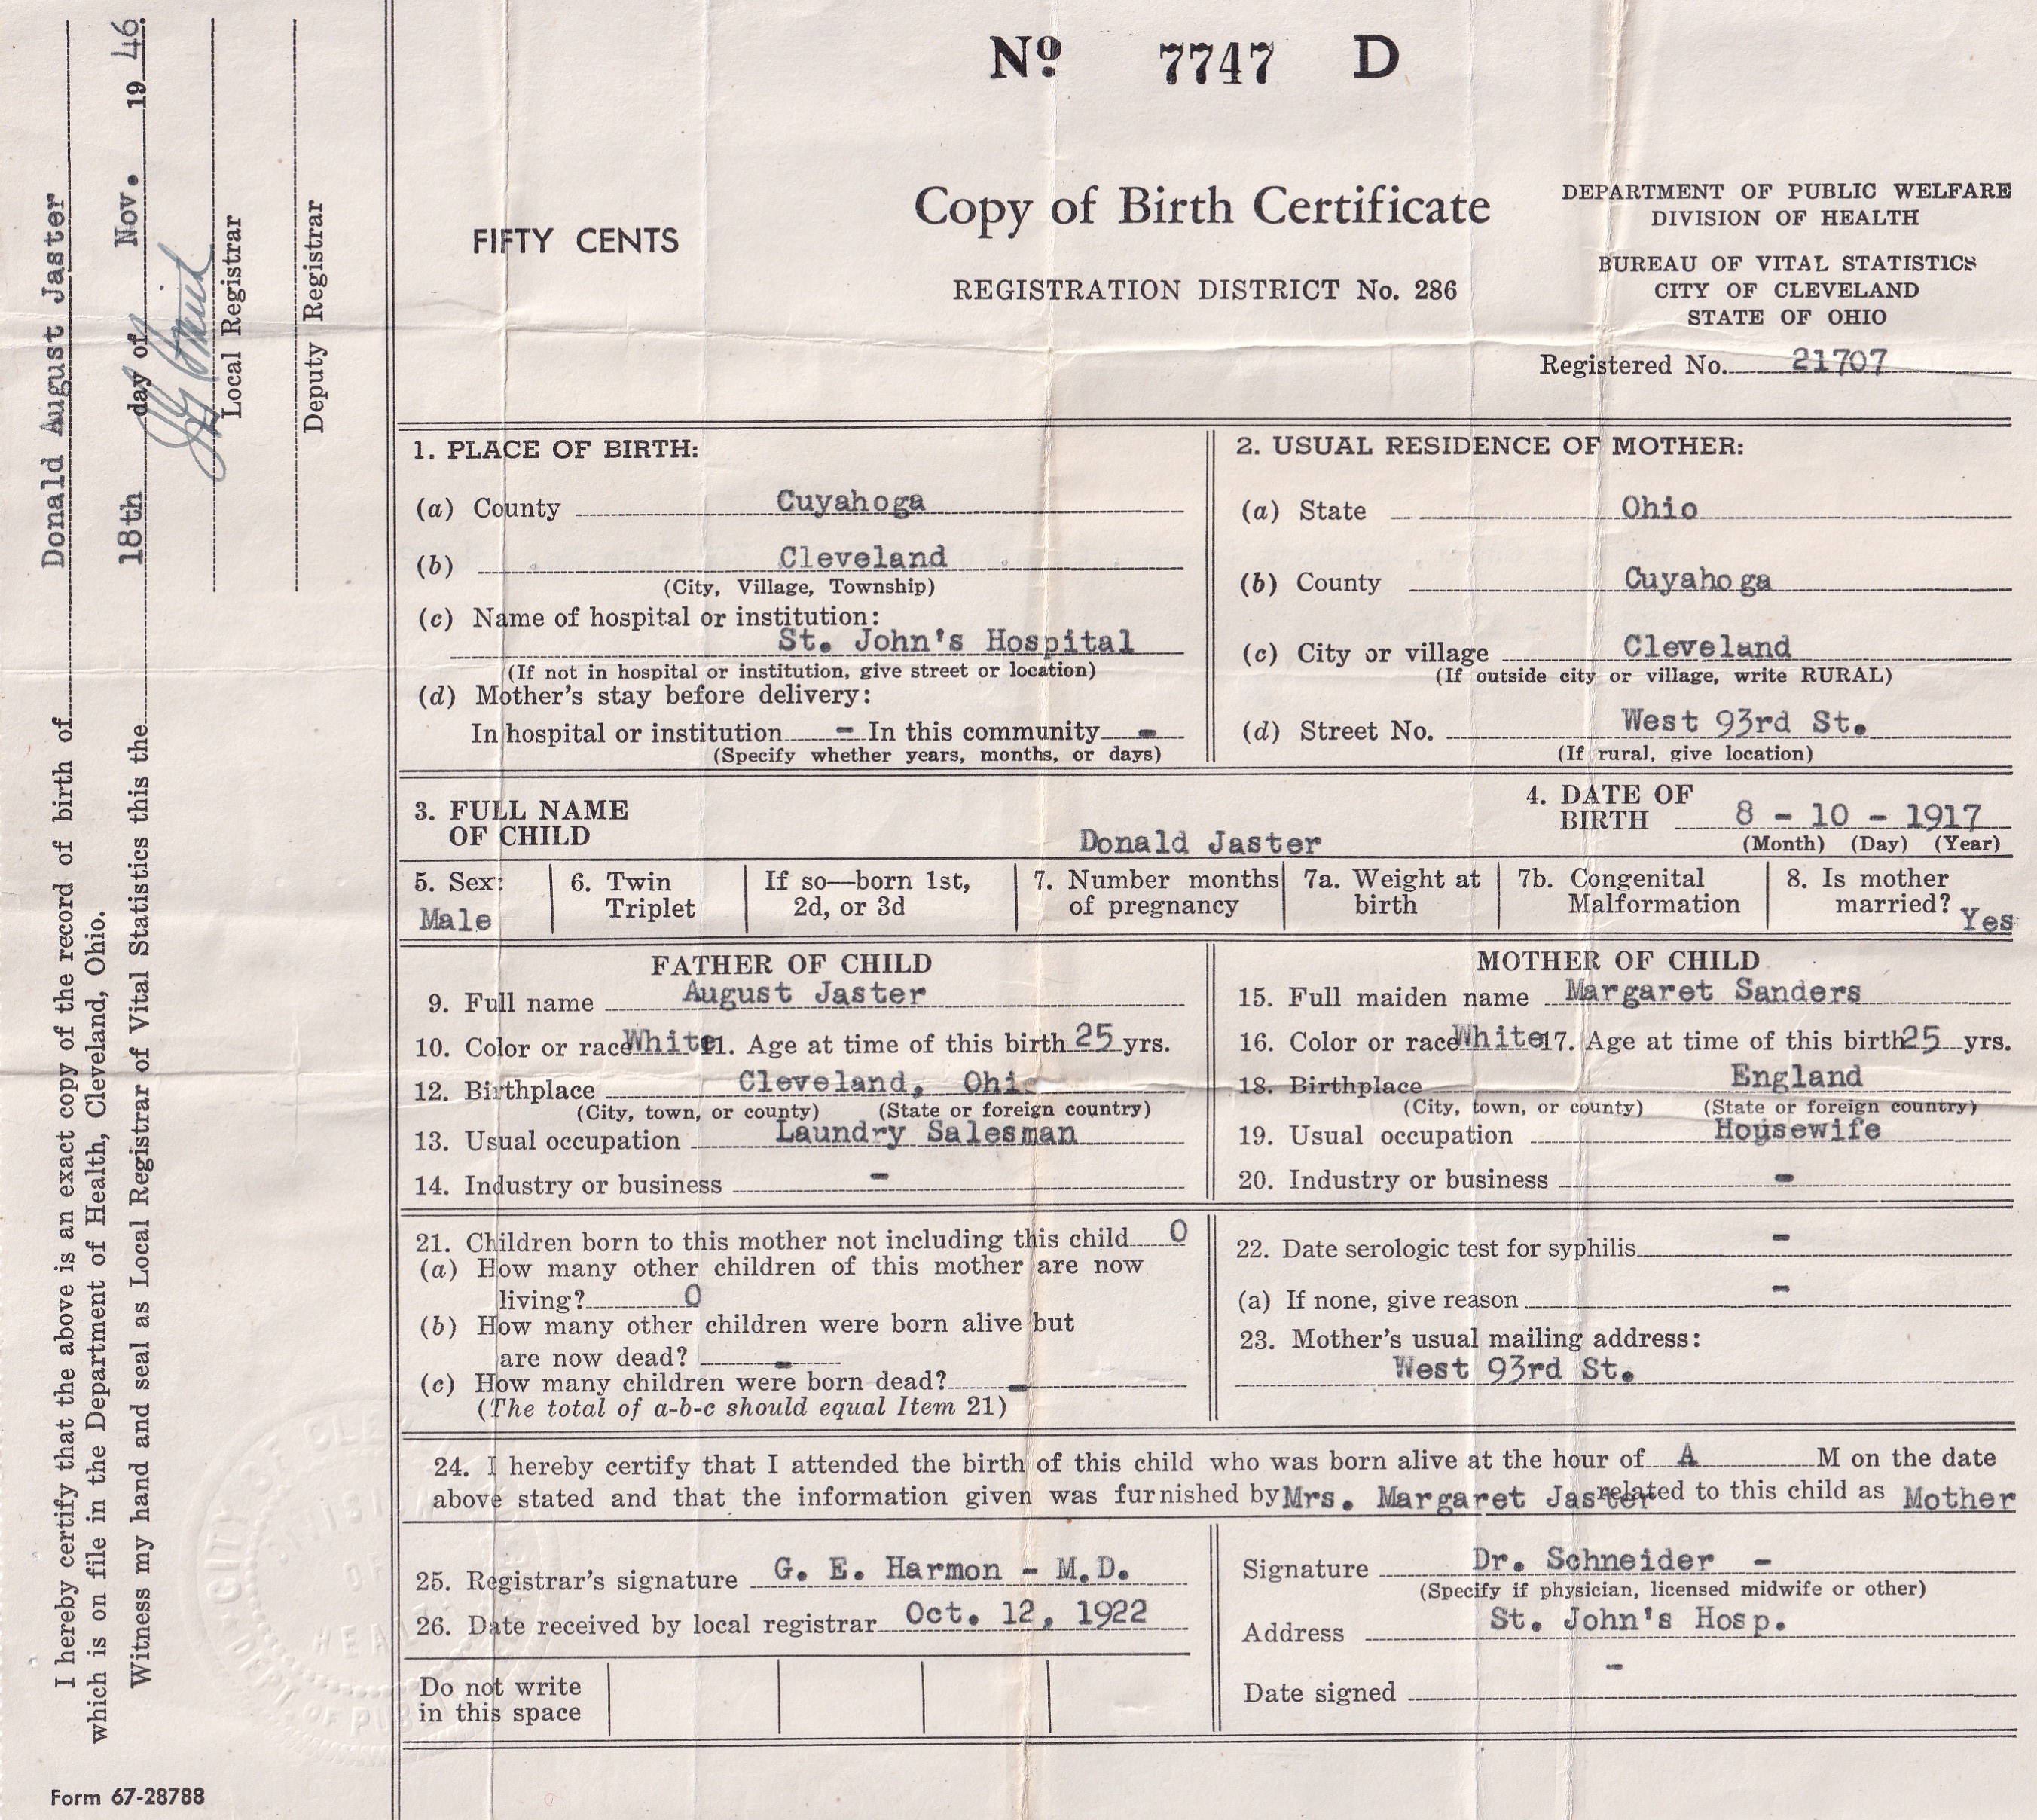 Nº 7747 D
FIFTY CENTS
Copy of Birth Certificate
REGISTRATION DISTRICT No. 286
DEPARTMENT OF PUBLIC WELFARE
DIVISION OF HEALTH
BUREAU OF VITAL STATISTICS
CITY OF CLEVELAND
STATE OF OHIO
Registered No. 21707
1. PLACE OF BIRTH:
(a) County Cuyahoga
(b) Cleveland
(City, Village, Township)
(c) Name of hospital or institution:
St. John's Hospital
(If not in hospital or institution, give street or location)
(d) Mother's stay before delivery:
In hospital or institution - In this community -
(Specify whether years, months, or days)
2. USUAL RESIDENCE OF MOTHER:
(a) State Ohio
(b) County Cuyahoga
(c) City or village Cleveland
(If outside city or village, write RURAL)
(d) Street No. West 93rd St.
(If rural, give location)
3. FULL NAME
OF CHILD Donald Jaster
4. DATE OF
BIRTH 8 - 10 - 1917
(Month) (Day) (Year)
5. Sex:
Male
6. Twin
Triplet
If so—born 1st,
2d, or 3d
7. Number months
of pregnancy
7a. Weight at
birth
7b. Congenital
Malformation
8. Is mother
married? Yes
FATHER OF CHILD
9. Full name August Jaster
10. Color or race White 11. Age at time of this birth 25 yrs.
12. Birthplace Cleveland, Ohi
(City, town, or county) (State or foreign country)
13. Usual occupation Laundry Salesman
14. Industry or business -
MOTHER OF CHILD
15. Full maiden name Margaret Sanders
16. Color or race White 17. Age at time of this birth 25 yrs.
18. Birthplace England
(City, town, or county) (State or foreign country)
19. Usual occupation Housewife
20. Industry or business -
21. Children born to this mother not including this child 0
(a) How many other children of this mother are now
living? 0
(b) How many other children were born alive but
are now dead? -
(c) How many children were born dead? -
(The total of a-b-c should equal Item 21)
22. Date serologic test for syphilis -
(a) If none, give reason -
23. Mother's usual mailing address:
West 93rd St.
24. I hereby certify that I attended the birth of this child who was born alive at the hour of A M on the date
above stated and that the information given was furnished by Mrs. Margaret Jaster related to this child as Mother
25. Registrar's signature G. E. Harmon - M.D.
26. Date received by local registrar Oct. 12, 1922
Do not write
in this space
Signature Dr. Schneider -
(Specify if physician, licensed midwife or other)
Address St. John's Hosp.
Date signed -
I hereby certify that the above is an exact copy of the record of birth of Donald August Jaster
which is on file in the Department of Health, Cleveland, Ohio.
Witness my hand and seal as Local Registrar of Vital Statistics this the 18th day of Nov. 19 46.
Local Registrar
Deputy Registrar
CITY OF CLE
DIVISION
OF
HEAL
DEPT. OF PU
Form 67-28788